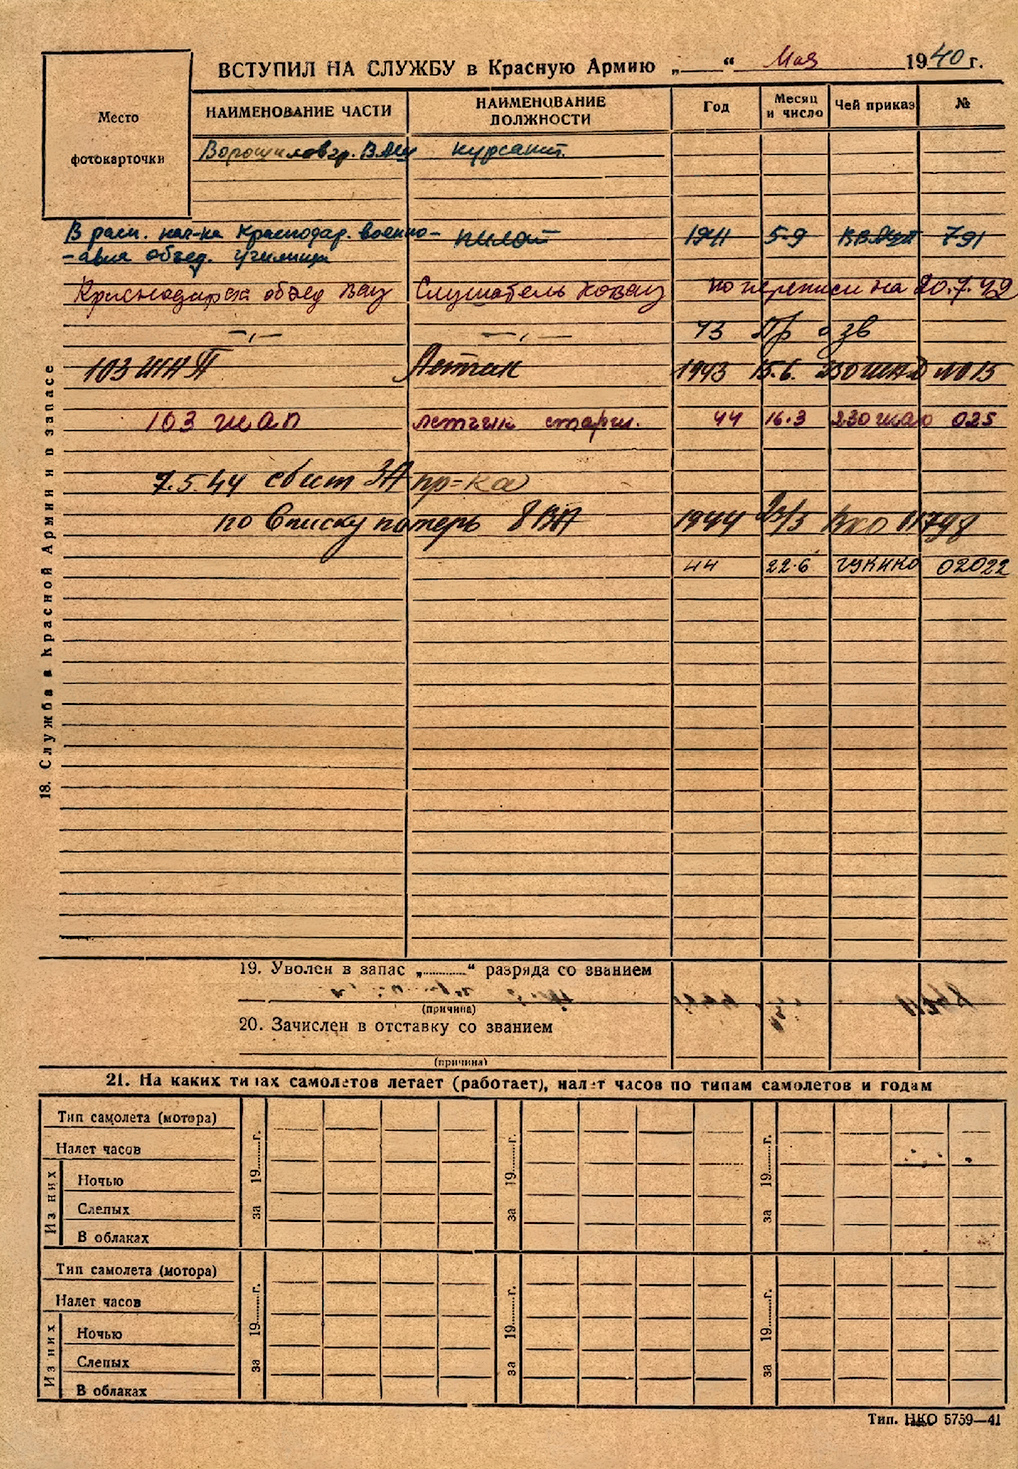 ВСТУПИЛ НА СЛУЖБУ в Красную Армию „ “ Мая 1940 г.
Место
фотокарточки
НАИМЕНОВАНИЕ ЧАСТИ
НАИМЕНОВАНИЕ ДОЛЖНОСТИ
Год
Месяц и число
Чей приказ
№
Ворошиловгр. ВАШ курсант.
В расп. нач-ка Краснодар. военно-
-авиа объед. училища пилот 1941 5-9 791
Краснодарск объед Вау Слушатель Ковау по переписи на 20.7.42
—„— —„— 43 Пр
103 ШАП Летчик 1943 15.6. 230 ШАД 0015
103 шап летчик старш. 44 16.3 230 шад 025
7.5.44 сбит ЗА пр-ка
по списку потерь 8 ВА 1944
44 22.6 ГУК НКО 02022
18. Служба в Красной Армии и в запасе
19. Уволен в запас „..........“ разряда со званием
(причина)
20. Зачислен в отставку со званием
(причина)
21. На каких типах самолетов летает (работает), налет часов по типам самолетов и годам
Тип самолета (мотора)
Налет часов
Из них
Ночью
Слепых
В облаках
за 19......г.
за 19......г.
за 19......г.
Тип самолета (мотора)
Налет часов
Из них
Ночью
Слепых
В облаках
за 19......г.
за 19......г.
за 19......г.
Тип. НКО 5759—41